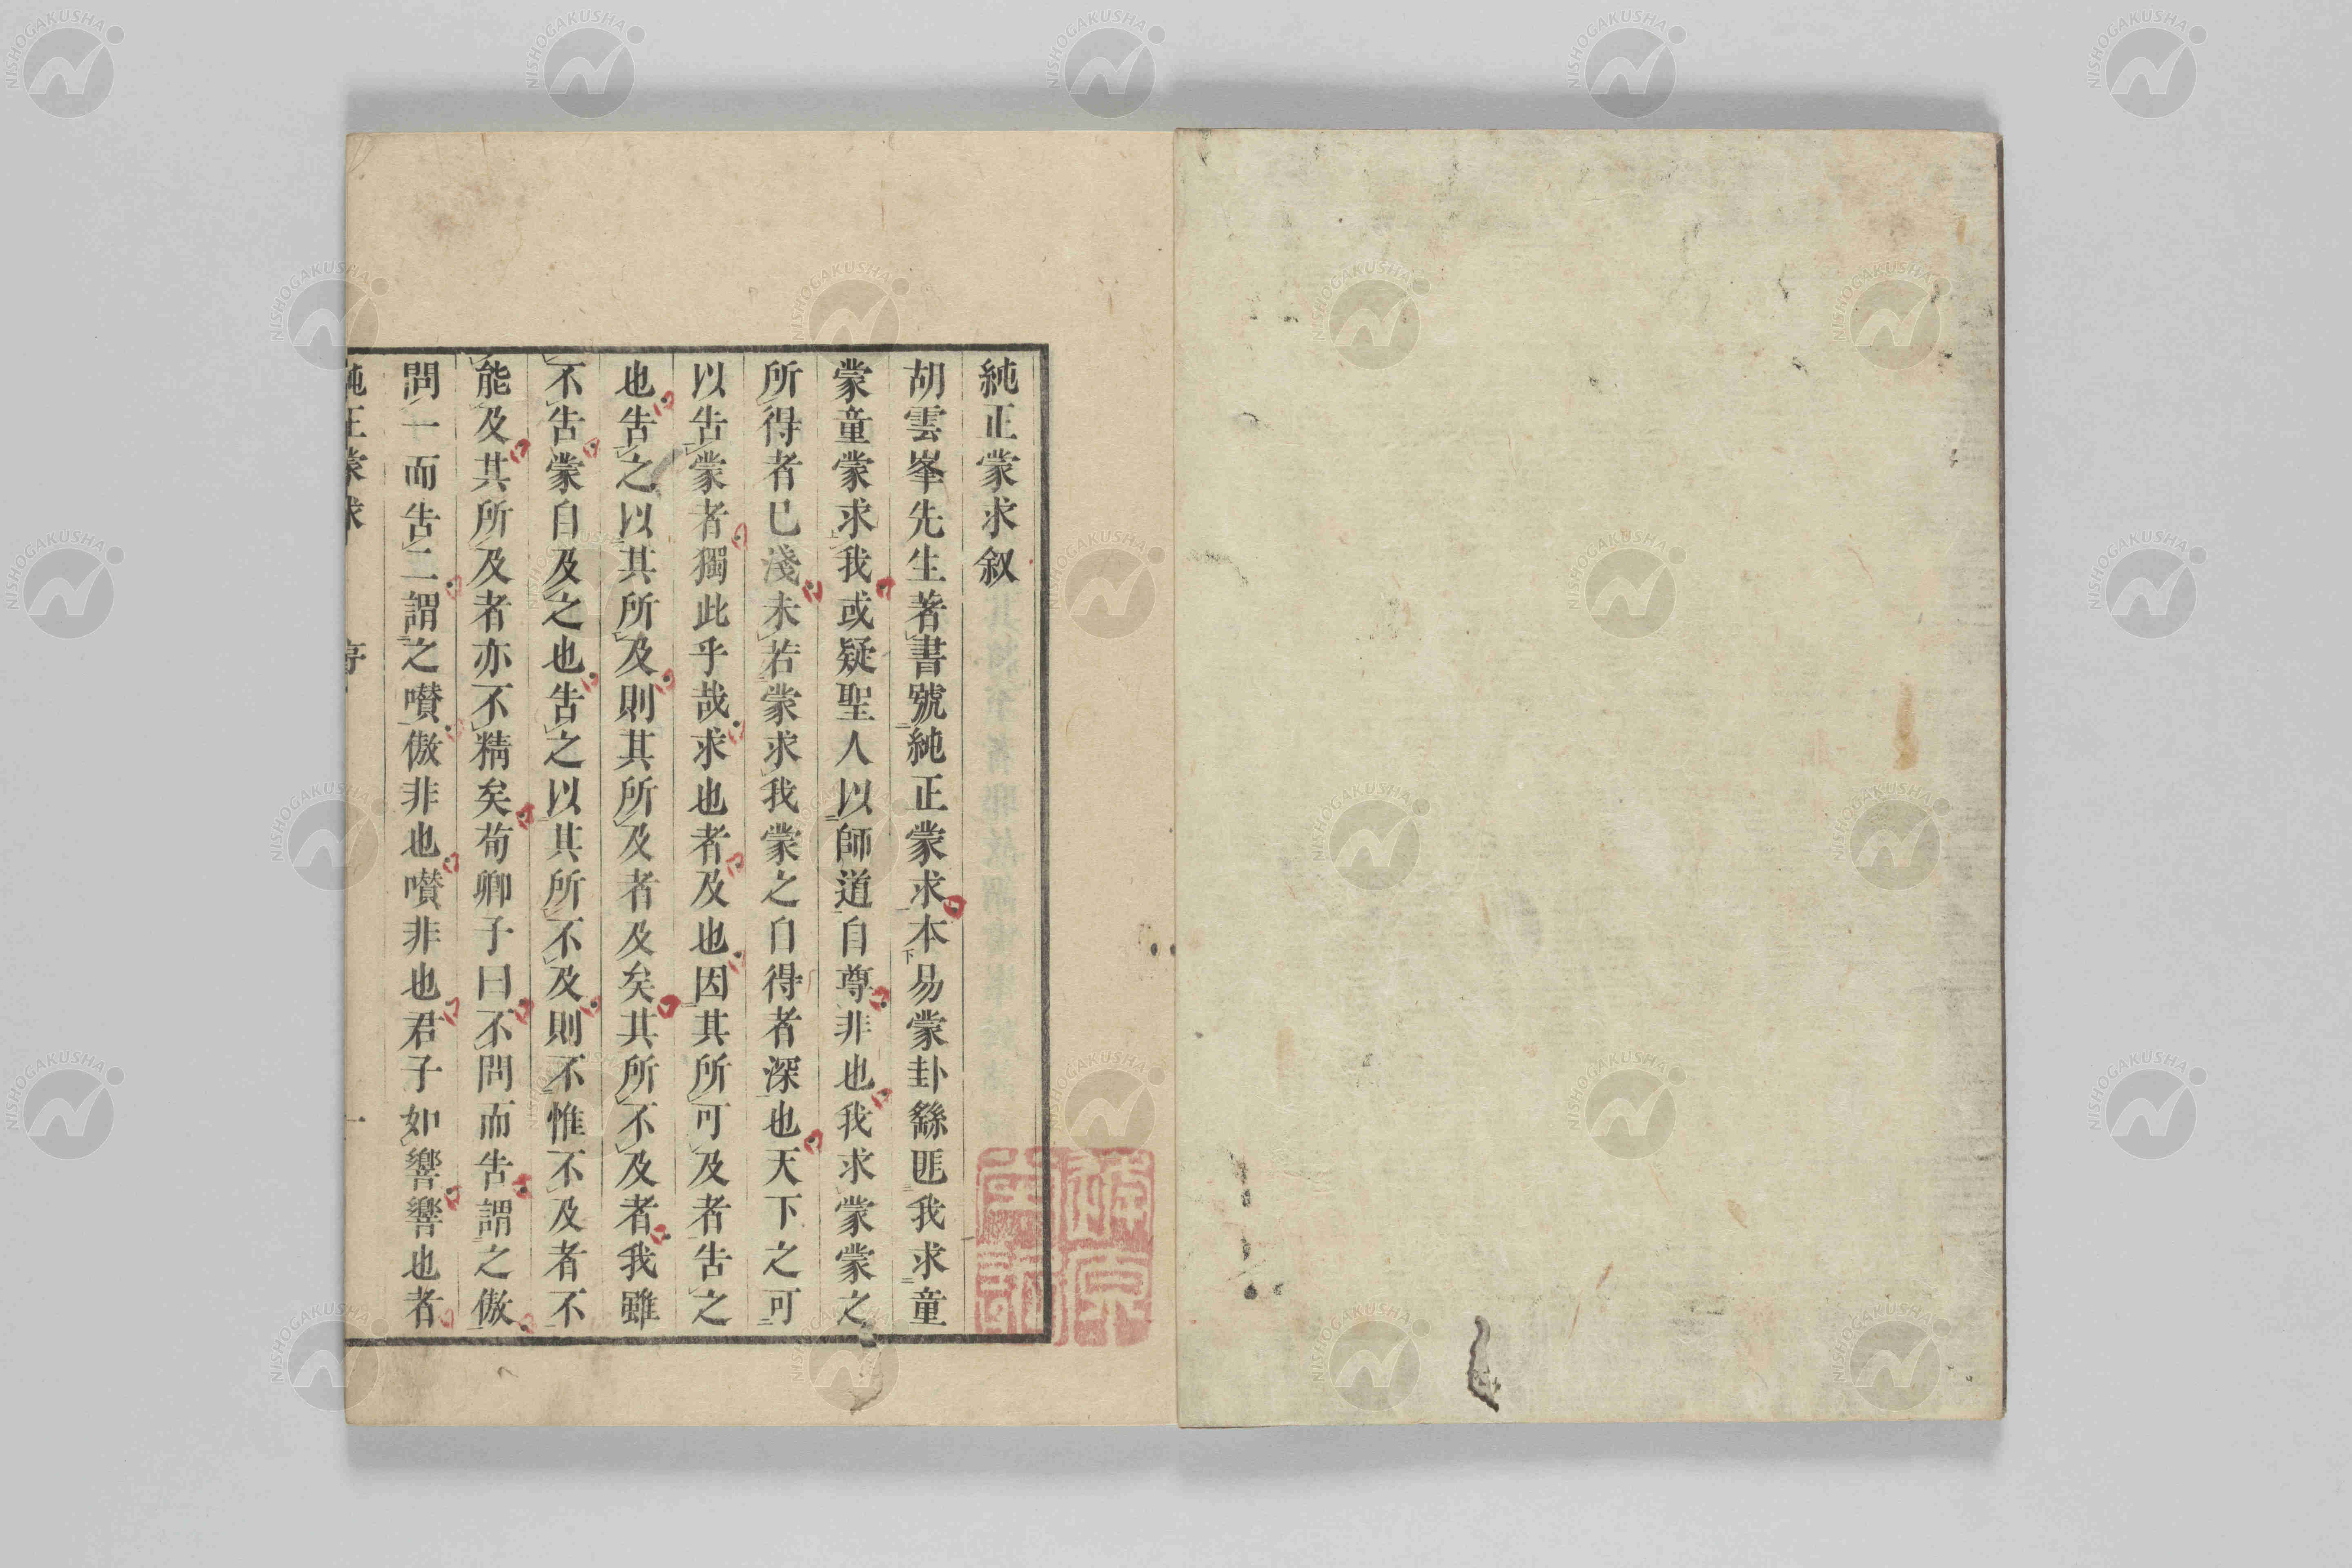 純正蒙求叙
胡雲峯先生著書號純正蒙求本易蒙卦繇匪我求童
蒙童蒙求我或疑聖人以師道自尊非也我求蒙蒙之
所得者已淺未若蒙求我蒙之自得者深也天下之可
以告蒙者獨此乎哉求也者及也因其所可及者告之
也告之以其所及則其所及者及矣其所不及者我雖
不告蒙自及之也告之以其所不及則不惟不及者不
能及其所及者亦不精矣荀卿子曰不問而告謂之傲
問一而告二謂之囋傲非也囋非也君子如響響也者
純正蒙求 序 一
NISHOGAKUSHA